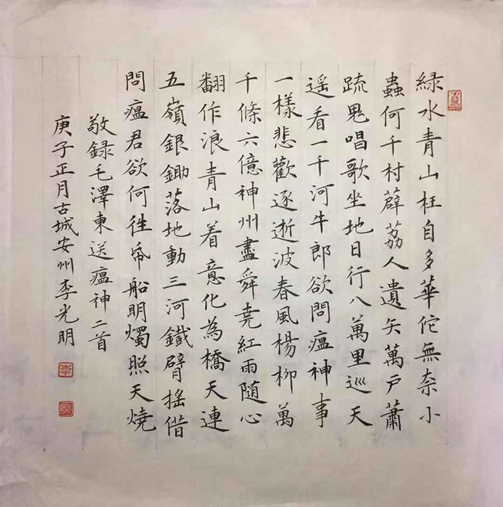 緑水青山枉自多華佗無奈小
蟲何千村薜荔人遺矢萬戶蕭
疏鬼唱歌坐地日行八萬里巡天
遥看一千河牛郎欲問瘟神事
一樣悲歡逐逝波春風楊柳萬
千條六億神州盡舜堯紅雨隨心
翻作浪青山着意化為橋天連
五嶺銀鋤落地動三河鐵臂摇借
問瘟君欲何往帋船明燭照天燒
敬録毛澤東送瘟神二首
庚子正月古城安州李光明